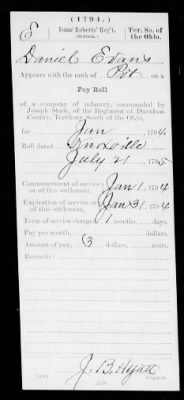 (1794.)
E | Isaac Roberts' Reg't. | Ter. So. of
(Militia.) | the Ohio.
Daniel Evans
Appears with the rank of Pvt on a
Pay Roll
of a company of infantry, commanded by
Joseph Shaw, of the Regiment of Davidson
County, Territory South of the Ohio,
for Jan , 1794.
Roll dated Knoxville
July 21 , 1795.
Commencement of service or of this settlement, Jan 1, 1794
Expiration of service or of this settlement, Jan 31, 1794
Term of service charged, 1 months, days.
Pay per month, dollars.
Amount of pay, 3 dollars, cents.
Remarks:
J. B. Hyatt
Copyist.